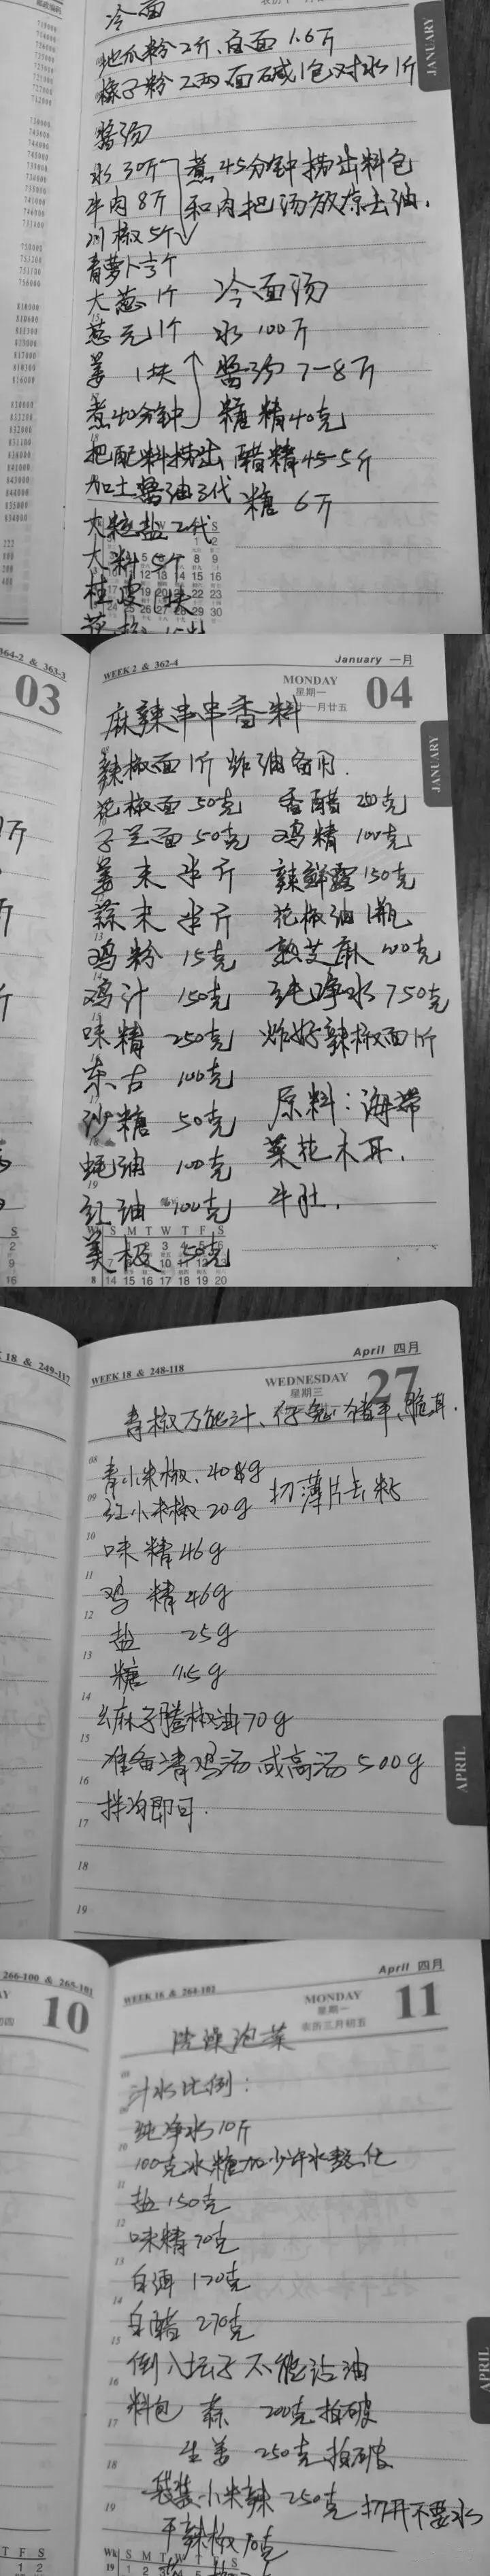 冷面
地瓜粉2斤、白面1.6斤
橡子粉2两面碱1包对水1斤
酱汤
水30斤 煮45分钟捞出料包
牛肉8斤 和肉把汤放凉去油.
川椒5个
青萝卜3个
大葱1个 冷面汤
葱元1个 水100斤
姜1块 酱汤7-8斤
煮40分钟 糖精40克
把配料捞出 醋精4.5-5斤
加土酱油3代 糖6斤
大粒盐2代
大料5个
桂皮1块
JANUARY
03
WEEK 2 & 362-4
January 一月
MONDAY
星期一
04
麻辣串串香料
辣椒面1斤炸油备用.
花椒面50克 香醋250克
子兰面50克 鸡精100克
姜末半斤 辣鲜露150克
蒜末半斤 花椒油1瓶
鸡粉15克 熟芝麻100克
鸡汁150克 纯净水750克
味精250克 炸好辣椒面1斤
东古100克
沙糖50克 原料:海带
蚝油100克 菜花木耳.
红油100克 牛肚.
美极50克
JANUARY
WEEK 18 & 248-118
April 四月
WEDNESDAY
星期三
27
青椒万能汁、仔兔
青小米椒.408g
红小米椒20g 切薄片去籽
味精46g
鸡精46g
盐25g
糖11.5g
幺麻子藤椒油70g
准备清鸡汤或高汤500g
拌均即可.
APRIL
266-100 & 265-101
10
WEEK 16 & 264-102
April 四月
MONDAY
星期一
农历三月初五
11
洗澡泡菜
汁水比例:
纯净水10斤
100克冰糖加少许水熬化
盐150克
味精70克
白酒170克
白醋270克
倒入坛子不能沾油
料包 蒜200克拍破
生姜250克拍破
袋装小米辣250克打开不要水
干辣椒70克
APRIL